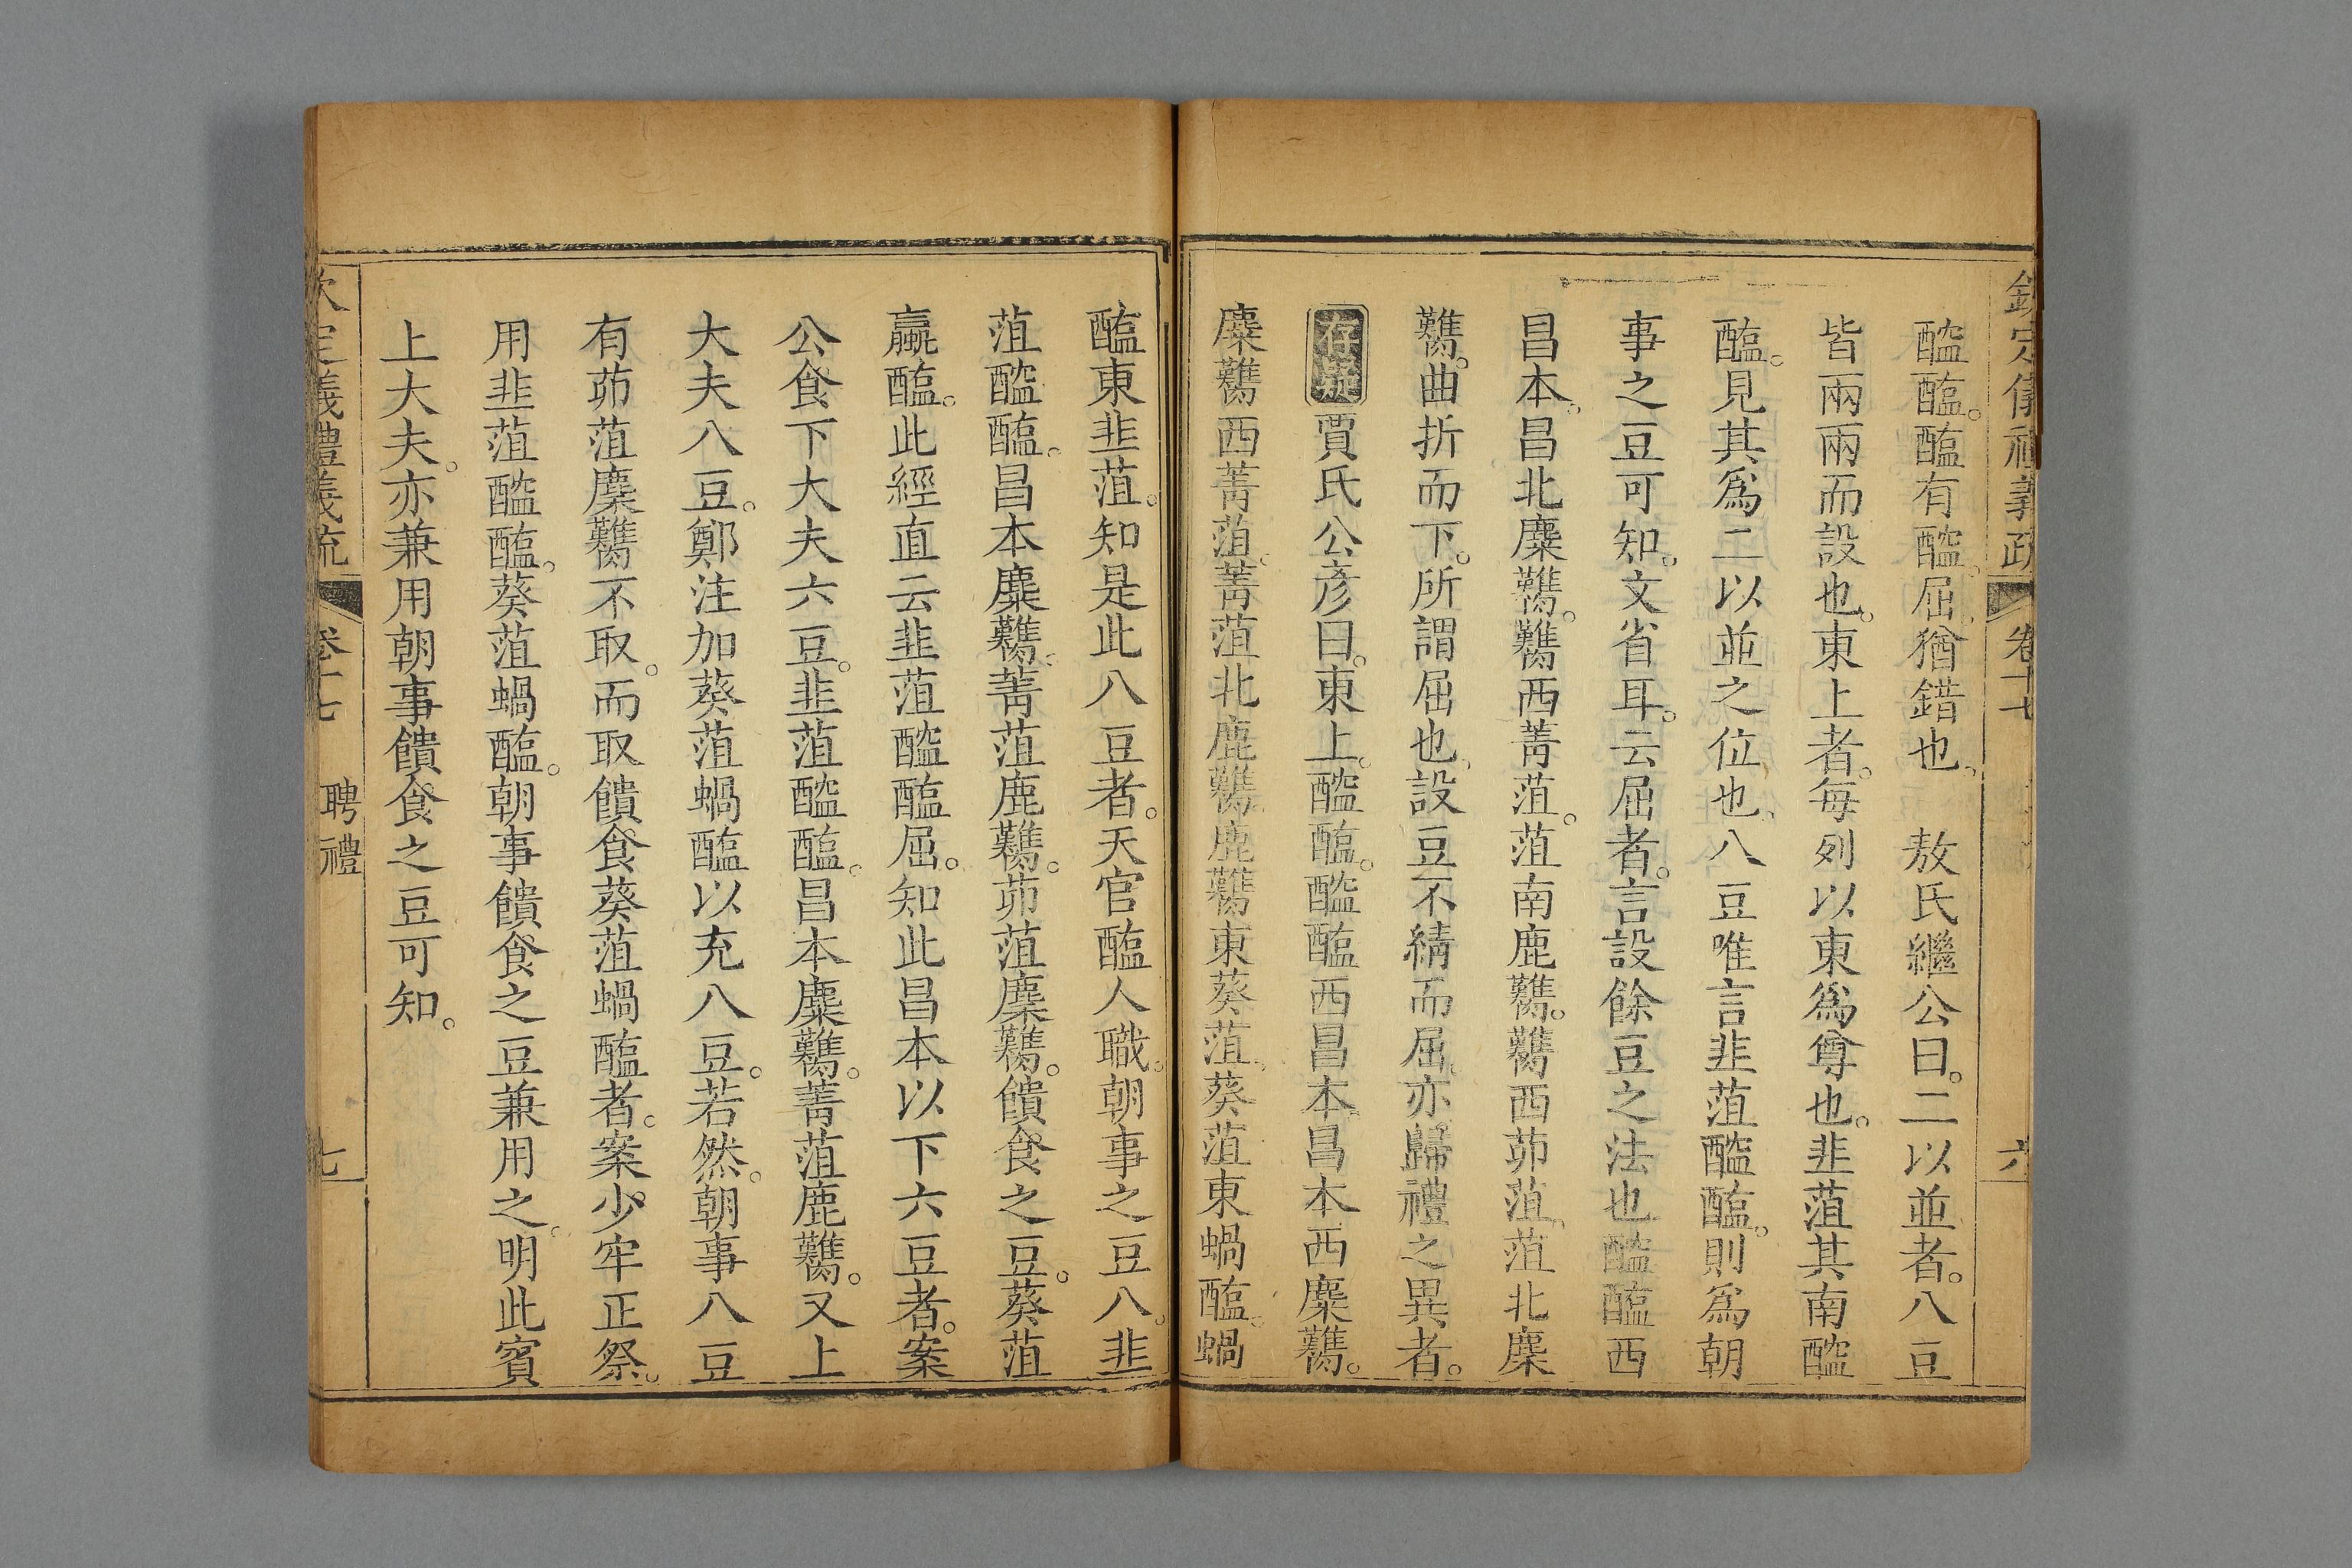 欽定儀禮義疏 卷十七 六
醓醢。醢有醓。屈、猶錯也。 敖氏繼公曰。二以並者。八豆
皆兩兩而設也。東上者。每列以東爲尊也。韭菹其南醓
醢。見其爲二以並之位也。八豆唯言韭菹醓醢。則爲朝
事之豆可知。文省耳。云屈者。言設餘豆之法也醓醢西
昌本。昌北麋臡。臡西菁菹。菹南鹿臡。臡西茆菹。菹北麇
臡。曲折而下。所謂屈也。設豆不綪而屈。亦歸禮之異者。
存疑 賈氏公彦曰。東上。醓醢。醓醢西昌本。昌本西麋臡。
麋臡西菁菹。菁菹北鹿臡。鹿臡東葵菹。葵菹東蝸醢。蝸
醢東韭菹。知是此八豆者。天官醢人職。朝事之豆八。韭
菹醓醢。昌本麋臡。菁菹鹿臡。茆菹麇臡。饋食之豆。葵菹
蠃醢。此經直云韭菹醓醢屈。知此昌本以下六豆者。案
公食下大夫六豆。韭菹醓醢。昌本麋臡。菁菹鹿臡。又上
大夫八豆。鄭注加葵菹蝸醢以充八豆。若然。朝事八豆
有茆菹麇臡不取。而取饋食葵菹蝸醢者。案少牢正祭。
用韭菹醓醢。葵菹蝸醢。朝事饋食之豆兼用之。明此賓
上大夫。亦兼用朝事饋食之豆可知。
欽定義禮義疏 卷十七 聘禮 七